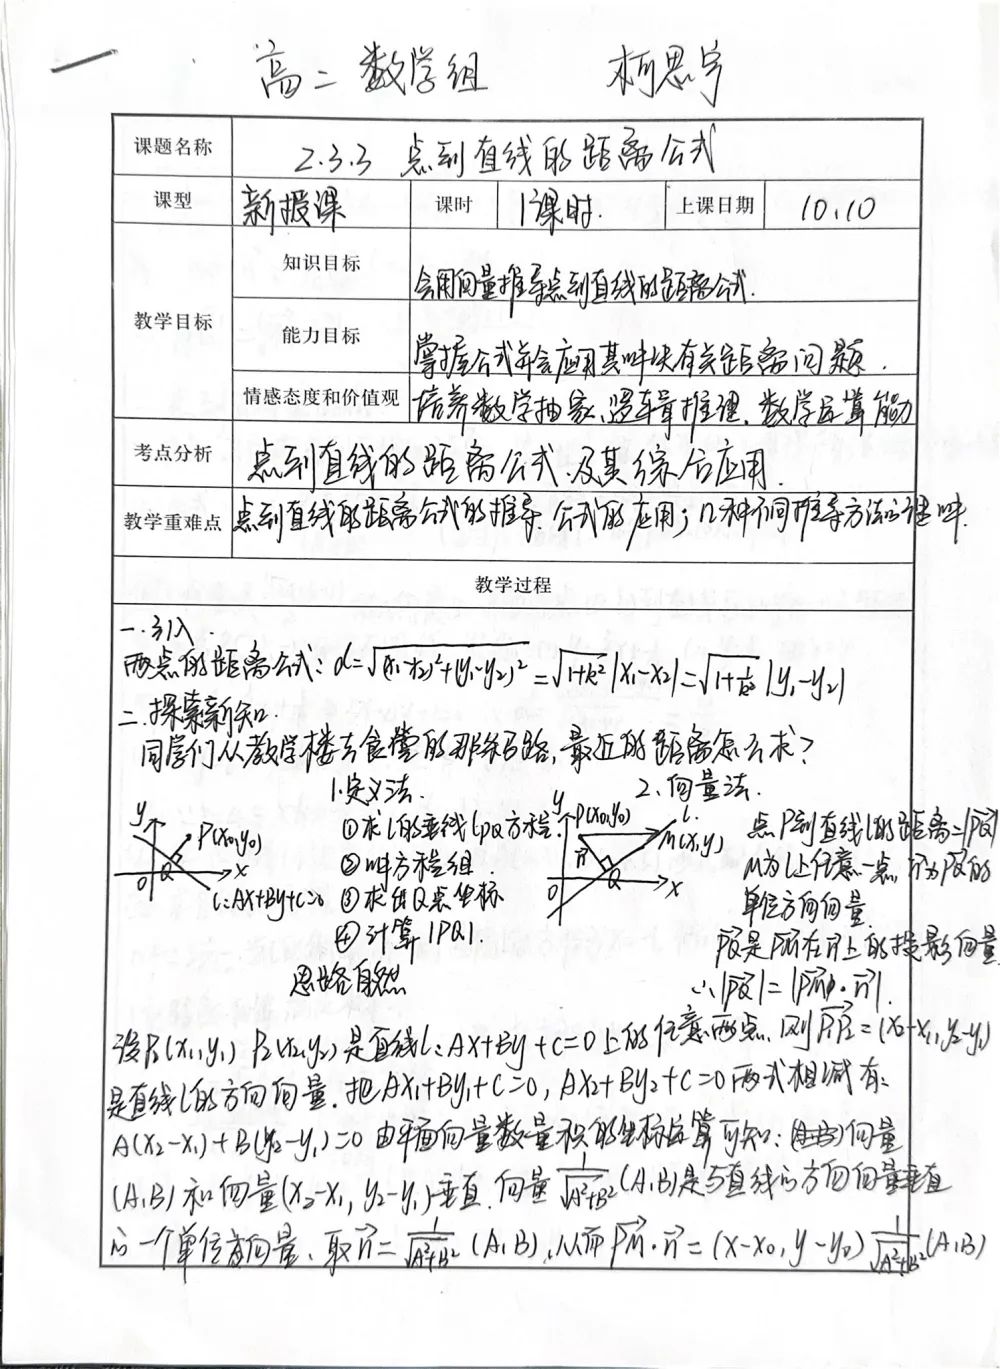 高二数学组 柯思宇
课题名称 2.3.3 点到直线的距离公式
课型 新授课 课时 1课时. 上课日期 10.10
教学目标
知识目标 会用向量推导点到直线的距离公式.
能力目标 掌握公式并会应用其解决有关距离问题.
情感态度和价值观 培养数学抽象、逻辑推理、数学运算能力
考点分析 点到直线的距离公式及其综合应用.
教学重难点 点到直线的距离公式的推导、公式的应用;几种不同推导方法的理解.
教学过程
一.引入.
两点的距离公式: d=√(x₁-x₂)²+(y₁-y₂)² =√1+k²|x₁-x₂|=√1+1/k²|y₁-y₂|
二.探索新知.
同学们从教学楼去食堂的那条路,最近的距离怎么求?
1.定义法.
y P(x₀,y₀)
O Q x
l:Ax+By+C=0
①求l的垂线lPQ方程.
②解方程组.
③求出Q点坐标
④计算|PQ|.
思路自然
2.向量法.
y P(x₀,y₀) l.
n M(x,y)
O Q x
点P到直线l的距离=|PQ|
M为l上任意一点,n为PQ的
单位方向向量
PQ是PM在n上的投影向量
∴|PQ|=|PM·n|.
设P₁(x₁,y₁) P₂(x₂,y₂)是直线l:Ax+By+C=0上的任意两点.则P₁P₂=(x₂-x₁,y₂-y₁)
是直线l的方向向量.把Ax₁+By₁+C=0,Ax₂+By₂+C=0两式相减有:
A(x₂-x₁)+B(y₂-y₁)=0 由平面向量数量积的坐标运算可知: 向量
(A,B)和向量(x₂-x₁,y₂-y₁)垂直.向量1/√A²+B²(A,B)是与直线的方向向量垂直
的一个单位向量、取n=1/√A²+B²(A,B),从而PM·n=(x-x₀,y-y₀)1/√A²+B²(A,B)